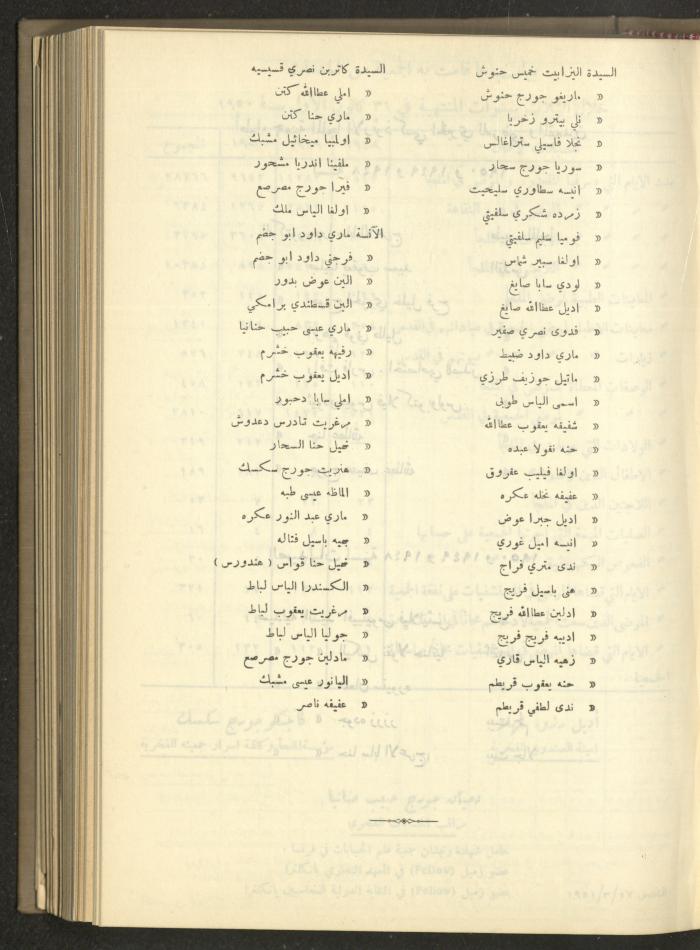 السيدة اليزابيت خميس حنوش
« ماريغو جورج حنوش
« نلي بيترو زخريا
« نجلا فاسيلي ستراغالس
« سوريا جورج سحار
« انيسه سطاوري سليحيت
« زمرده شكري سلفيتي
« فوميا سليم سلفيتي
« اولغا سبير شماس
« لودي سابا صايغ
« اديل عطاالله صايغ
« فدوى نصري صفير
« ماري داود ضبيط
« ماتيل جوزيف طرزي
« اسمى الياس طوبى
« شفيقه يعقوب عطاالله
« حنه نقولا عبده
« اولغا فيليب عفروق
« عفيفه نخله عكره
« اديل جبرا عوض
« انيسه اميل غوري
« ندى متري فراج
« هني باسيل فريج
« ادلين عطاالله فريج
« اديبه فريج فريج
« زهيه الياس قازي
« حنه يعقوب قريطم
« ندى لطفي قريطم
السيدة كاترين نصري قسيسيه
« املي عطاالله كتن
« ماري حنا كتن
« اولمبيا ميخائيل مشبك
« ملفينا اندريا مشحور
« فيرا جورج مصرصع
« اولغا الياس ملك
الآنسة ماري داود ابو جضم
« فرجني داود ابو جضم
« الين عوض بدور
« الين قسطندي برامكي
« ماري عيسى حبيب حنانيا
« رفيقه يعقوب خشرم
« اديل يعقوب خشرم
« املي سابا دحبور
« مرغريت تادرس دعدوش
« نخيل حنا السحار
« هنريت جورج سكسك
« الماظه عيسى طبه
« ماري عبد النور عكره
« نجيه باسيل فتاله
« نخيل حنا قواس ( هندورس )
« الكسندرا الياس لباط
« مرغريت يعقوب لباط
« جوليا الياس لباط
« مادلين جورج مصرصع
« اليانور عيسى مشبك
« عفيفه ناصر